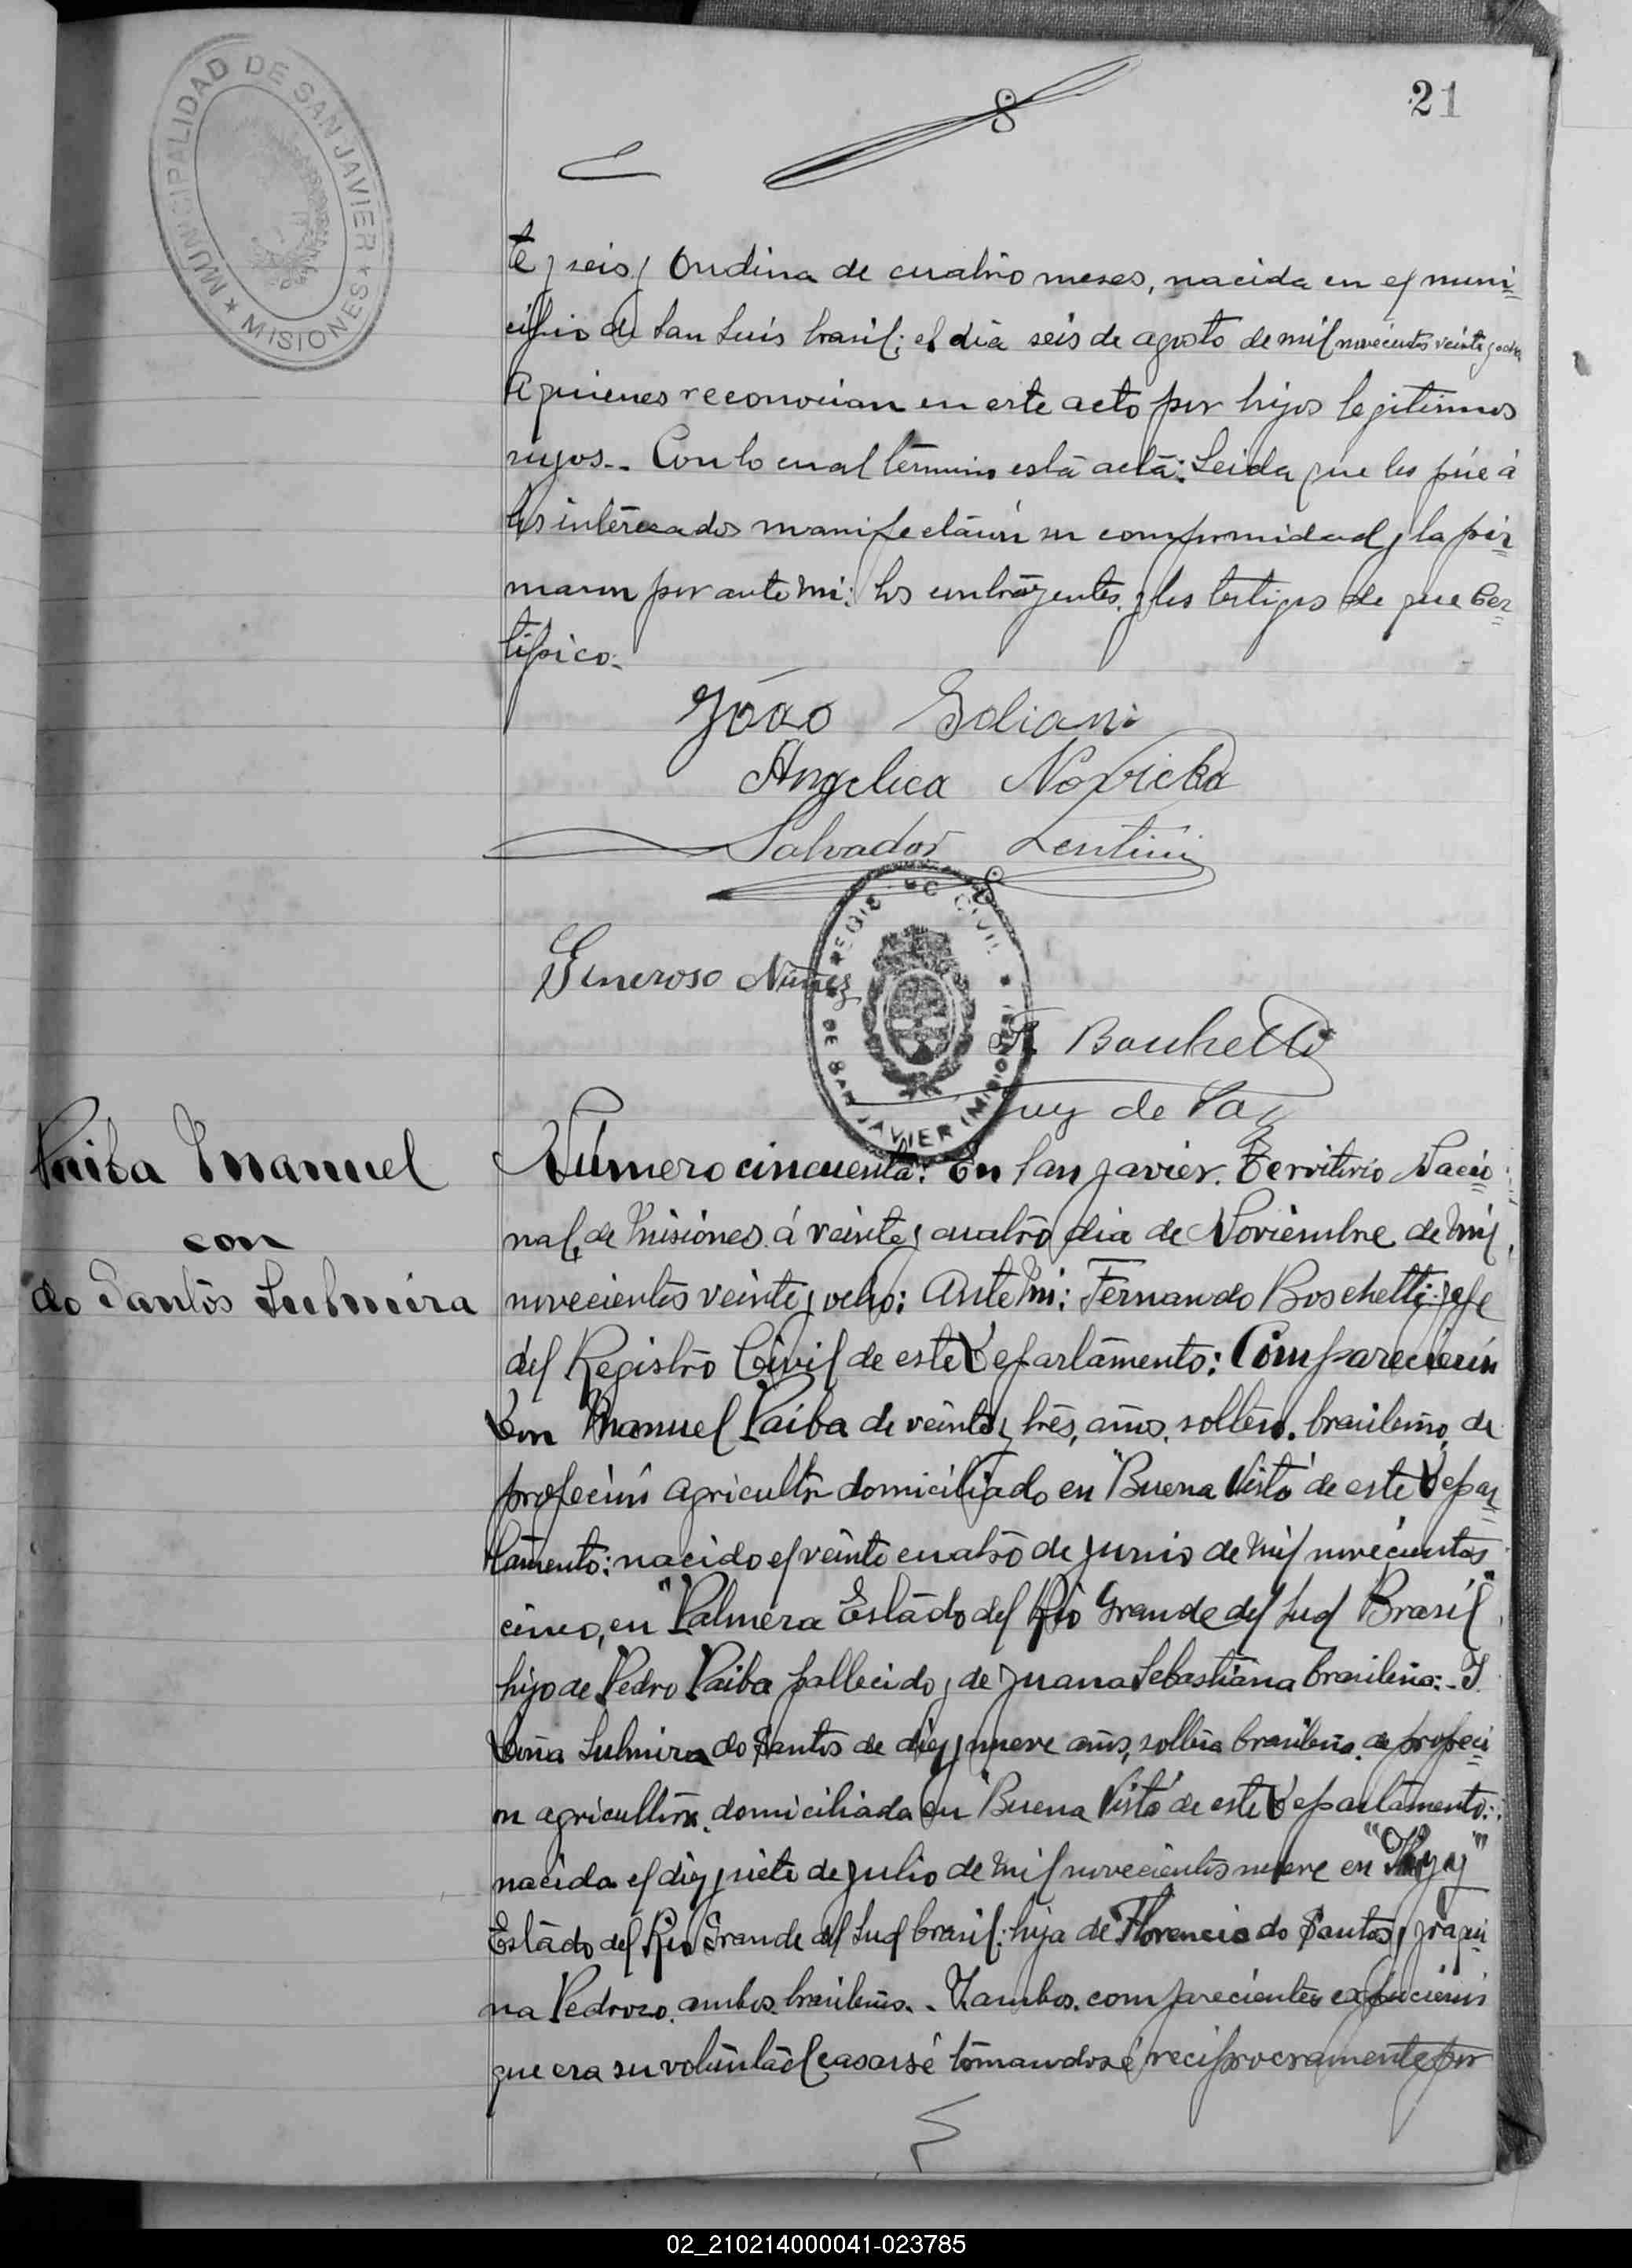 21
MUNICIPALIDAD DE SAN JAVIER
★ MISIONES ★
te y seis y Ondina de cuatro meses, nacida en el muni-
cipio de San Luis brasil; el dia seis de agosto de mil novecientos veinte y ocho
A quienes reconocian en este acto por hijos legitimos
suyos.. Con lo cual termino esta acta: Leida que les fue á
los interesados manifestaron su conformidad y la fir-
maron por ante mi: los contrayentes y los testigos de que Cer-
tifico.
João Soliani
Angelica Novicka
Salvador Lentini
Generoso Nuñez
F. Boschetti
Juez de Paz
REGISTRO CIVIL
DE SAN JAVIER (MISIONES)
Paiba Manuel
con
do Santos Lulmira
Número cincuenta: En San Javier. Territorio Nacio-
nal, de Misiones á veinte y cuatro dia de Noviembre de mil
novecientos veinte y ocho: Ante mi: Fernando Boschetti: jefe
del Registro Civil de este Departamento: Comparecieron
Don Manuel Paiba de veinte y tres, años, soltero. brasileño, de
profecion agricultor domiciliado en "Buena Vista" de este Depar-
tamento: nacido el veinte cuatro de Junio de mil novecientos
cinco, en "Palmera Estado del Rio Grande del Sud Brasil"
hijo de Pedro Paiba fallecido y de Juana Sebastiana brasileña:- Y
Doña Lulmira do Santos de diez y nueve años, soltera brasileña. de profeci-
on agricultora. domiciliada en "Buena Vista" de este Departamento:
nacida el diez y siete de Julio de mil novecientos nueve en
Estado del Rio Grande del Sud brasil: hija de Florencio do Santos y Joaqui-
na Pedrozo. ambos brasileños.. Y ambos. comparecientes expucieron
que era su voluntad casarsé tomandosé reciprocramente por
02_210214000041-023785